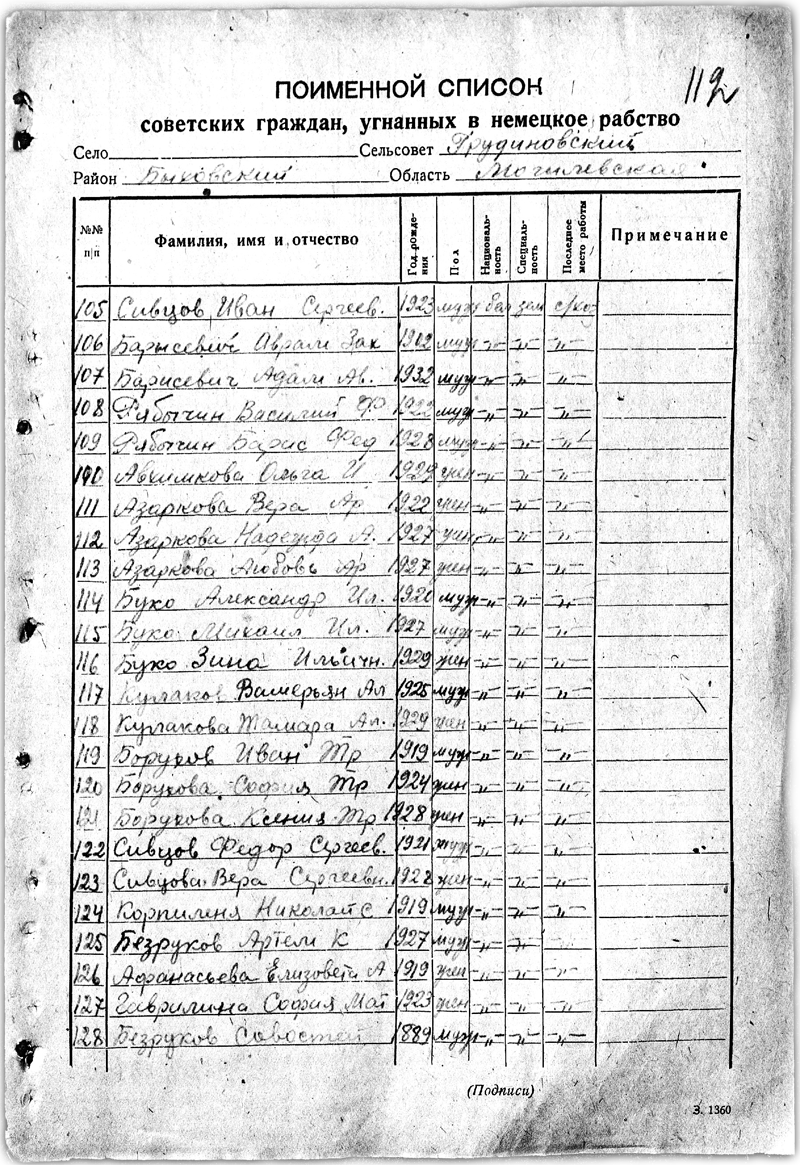 112
ПОИМЕННОЙ СПИСОК
советских граждан, угнанных в немецкое рабство
Село Сельсовет Грудиновский
Район Быховский Область Могилевская
№№ п/п Фамилия, имя и отчество Год рождения Пол Националь-ность Специаль-ность Последнее место работы Примечание
105 Сивцов Иван Сергеев. 1923 муж бел зем с/хо
106 Барысевич Аврам Зак 1902 муж -„- -„- -„-
107 Барисевич Адам Ав. 1932 муж -„- -„- -„-
108 Рябычин Василий Ф 1922 муж -„- -„- -„-
109 Рябычин Барис Фед 1928 муж -„- -„- -„-
110 Авхимкова Ольга И 1929 жен -„- -„- -„-
111 Азаркова Вера Ар 1922 жен -„- -„- -„-
112 Азаркова Надежда А. 1927 жен -„- -„- -„-
113 Азаркова Любовь Ар 1927 жен -„- -„- -„-
114 Буко Александр Ил. 1920 муж -„- -„- -„-
115 Буко Михаил Ил. 1927 муж -„- -„- -„-
116 Буко Зина Ильичн. 1929 жен -„- -„- -„-
117 Кулаков Валерьян Ал 1925 муж -„- -„- -„-
118 Кулакова Тамара Ал. 1929 жен -„- -„- -„-
119 Боруков Иван Тр 1919 муж -„- -„- -„-
120 Борукова София Тр 1924 жен -„- -„- -„-
121 Борукова Ксения Тр 1928 жен -„- -„- -„-
122 Сивцов Федор Сергеев. 1921 муж -„- -„- -„-
123 Сивцова Вера Сергеевн. 1928 жен -„- -„- -„-
124 Корпиленя Николай С 1919 муж -„- -„- -„-
125 Безруков Артем К 1927 муж -„- -„- -„-
126 Афанасьева Елизовета А 1919 жен -„- -„- -„-
127 Гаврилина София Мат 1923 жен -„- -„- -„-
128 Безруков Савостей 1889 муж -„- -„- -„-
(Подписи)
З. 1360